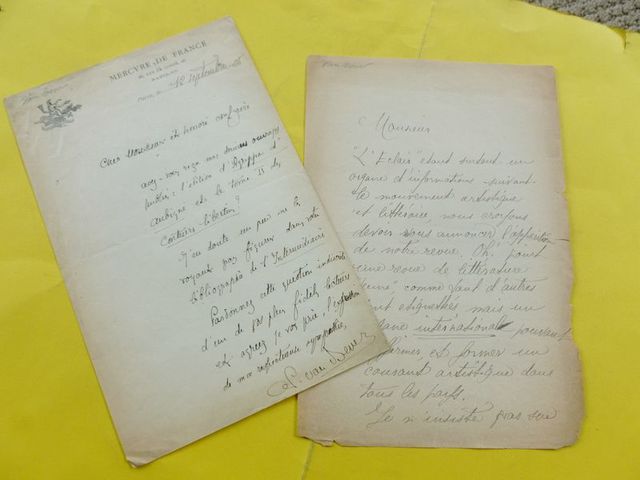 MERCVRE DE FRANCE
12 septembre
Cher Monsieur et honoré confrère
avez-vous reçu mes derniers ouvrages
publiés : l'édition d'Agrippa d'
Aubigné et le tome II du
Centaure libertin ?
J'en doute un peu ne le
voyant pas figurer dans votre
bibliographie de l'Intermédiaire
Pardonnez cette question indiscrète
d'un de vos plus fidèles lecteurs
et agréez je vous prie, l'expression
de ma respectueuse sympathie,
Ad. van Bever
Monsieur
"L'Eclair" étant surtout un
organe d'informations suivant
le mouvement artistique
et littéraire nous croyons
devoir vous annoncer l'apparition
de notre revue. Oh! point
une revue de littérature
"jeune" comme tant d'autres
sont etiquettées mais un
organe international pouvant
affirmer et former un
courant artistique dans
tous les pays.
Je n'insiste pas sur